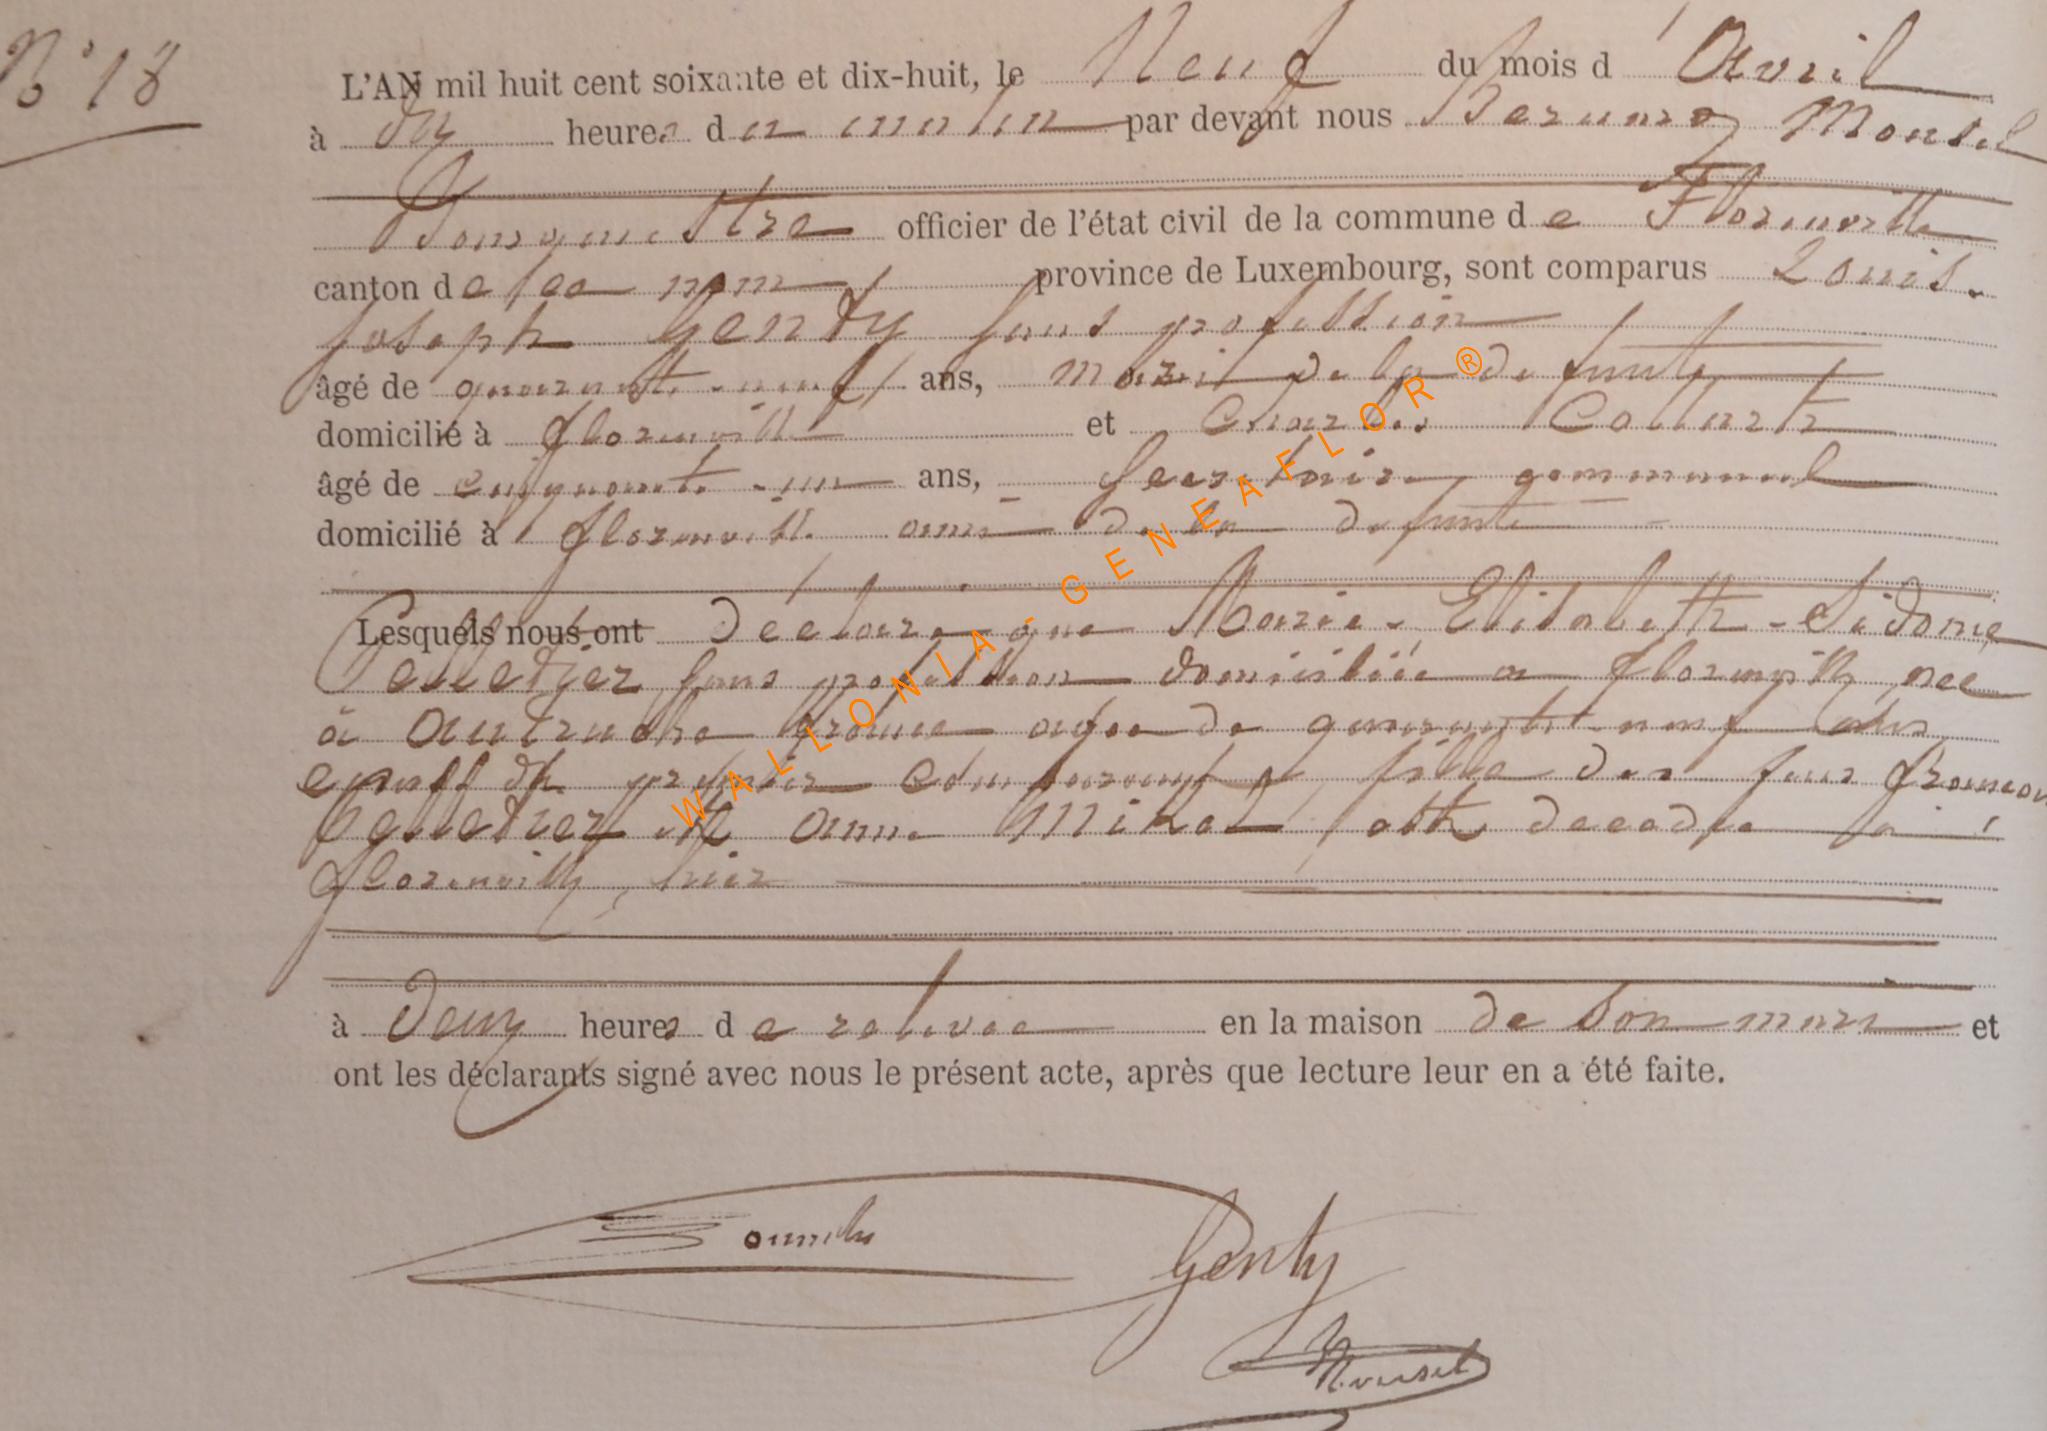 N° 18
L'AN mil huit cent soixante et dix-huit, le Neuf du mois d'Avril
à dix heures du matin par devant nous Monsel
Bourgmestre officier de l'état civil de la commune de Florenville
canton de ce nom province de Luxembourg, sont comparus Louis-
Joseph Genty sans profession
âgé de quarante-neuf ans, mari de la défunte
domicilié à florenville et Charles
âgé de cinquante-un ans, Secrétaire communal
domicilié à florenville ami de la défunte
Lesquels nous ont déclaré que Marie-Elisabeth-Sidonie
Pelletier sans profession domiciliée a florenville née
à Autruche france agée de quarante-neuf ans
épouse du premier comparant, fille des feus françois
Pelletier et Anne est decedée à
florenville, hier
à deux heures de relevée en la maison de son mari et
ont les déclarants signé avec nous le présent acte, après que lecture leur en a été faite.
Genty
Monsel
WALLONIA-GENEAFLOR®